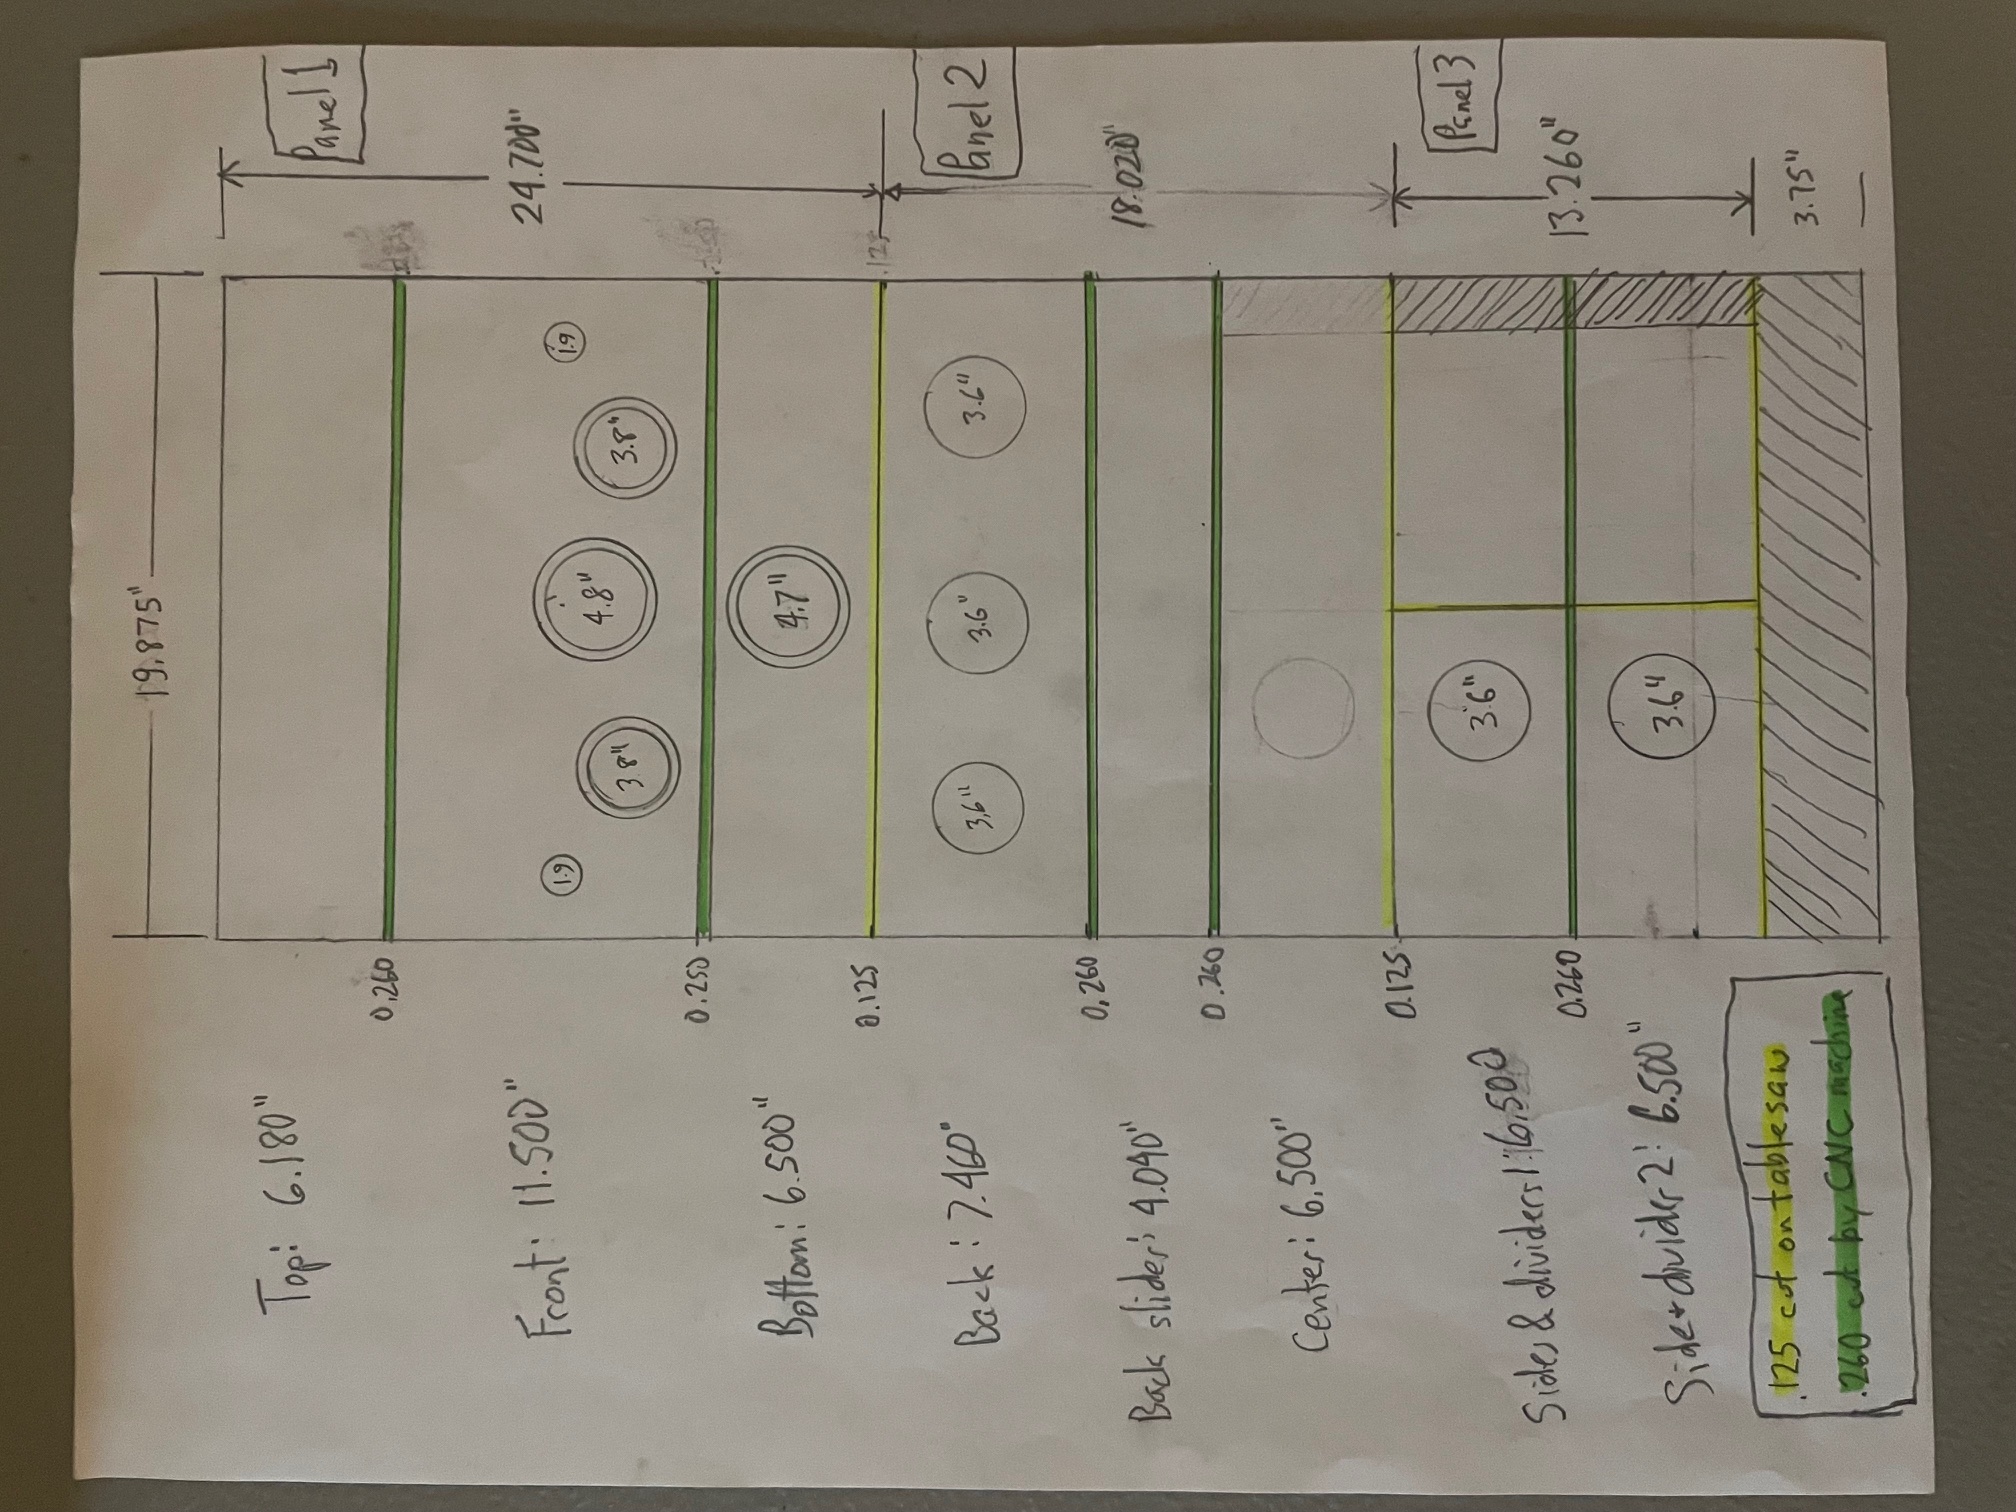 19.875"
Top: 6.180"
Panel 1
0.260
Front: 11.500"
24.700"
1.9
3.8"
4.8"
3.8"
1.9
0.250
Bottom: 6.500"
4.7"
0.125
.125
Back: 7.460"
3.6"
3.6"
3.6"
Panel 2
0.260
Back slider: 4.040"
18.020"
0.260
Center: 6.500"
0.125
3.6"
Panel 3
Sides & dividers 1: 6.500
0.260
13.260"
Side + divider 2: 6.500"
3.6"
.125 cut on table saw
.260 cut by CNC machine
3.75"